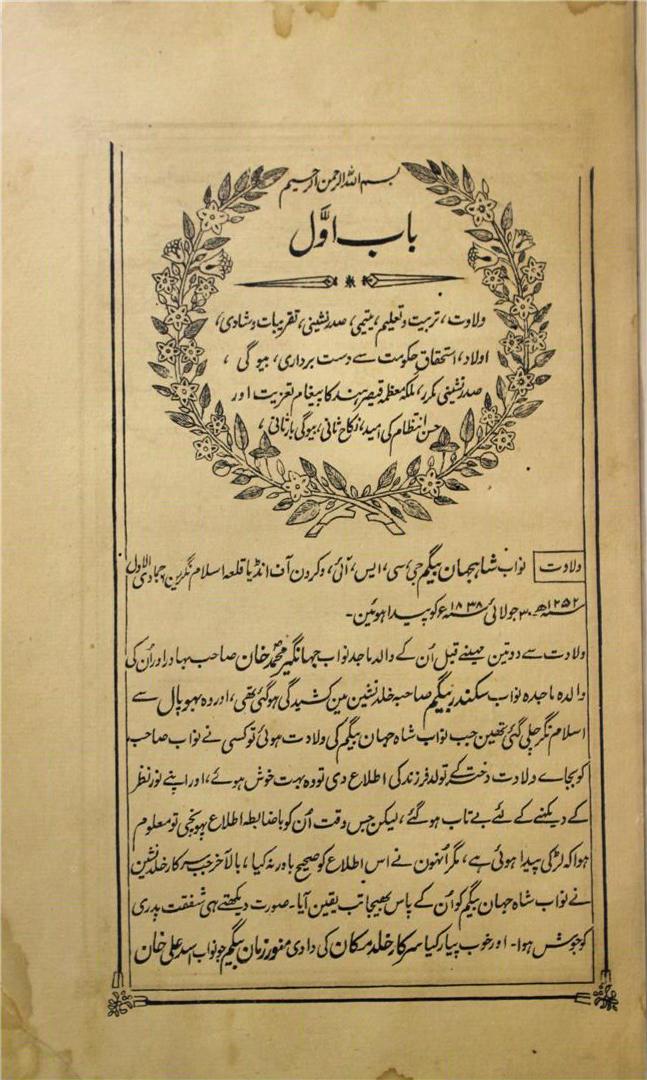 بسم اللہ الرحمن الرحیم
باب اوّل
ولادت، تربیت و تعلیم، یتیمی، صدر نشینی، تقریبات و شادی،
اولاد، استحقاق حکومت سے دست برداری، بیوگی،
صدر نشینی مکرر، ملکہ معظمہ قیصر ہند کا پیغام تعزیت اور
حسن انتظام کی امید، نکاح ثانی، بیوگی بار ثانی،
ولادت نواب شاہجہان بیگم جی، سی، ایس، آئی، و کرون آف انڈیا قلعہ اسلام نگر مین جمادی الاول
سنہ ۱۲۵۴ھ ۳۰ جولائی سنہ ۱۸۳۸ء کو پیدا ہوئین۔
ولادت سے دو تین مہینے قبل اُن کے والد ماجد نواب جہانگیر محمد خان صاحب بہادر اور اُن کی
والدہ ماجدہ نواب سکندر بیگم صاحبہ خلد نشین مین کشیدگی ہو گئی تھی، اور وہ بھوپال سے
اسلام نگر چلی گئی تھین جب نواب شاہ جہان بیگم کی ولادت ہوئی تو کسی نے نواب صاحب
کو بجاے ولادت دختر کے تولد فرزند کی اطلاع دی تو وہ بہت خوش ہوئے، اور اپنے نور نظر
کے دیکھنے کے لئے بے تاب ہو گئے، لیکن جس وقت اُن کو باضابطہ اطلاع پہونچی تو معلوم
ہوا کہ لڑکی پیدا ہوئی ہے، مگر اُنہون نے اس اطلاع کو صحیح باور نہ کیا، بالآخر جب سرکار خلد نشین
نے نواب شاہ جہان بیگم کو اُن کے پاس بھیجا تب یقین آیا۔ صورت دیکھتے ہی شفقت پدری
کو جوش ہوا۔ اور خوب پیار کیا سرکار خلد مکان کی دادی منور زمان بیگم جو نواب اسد علی خان